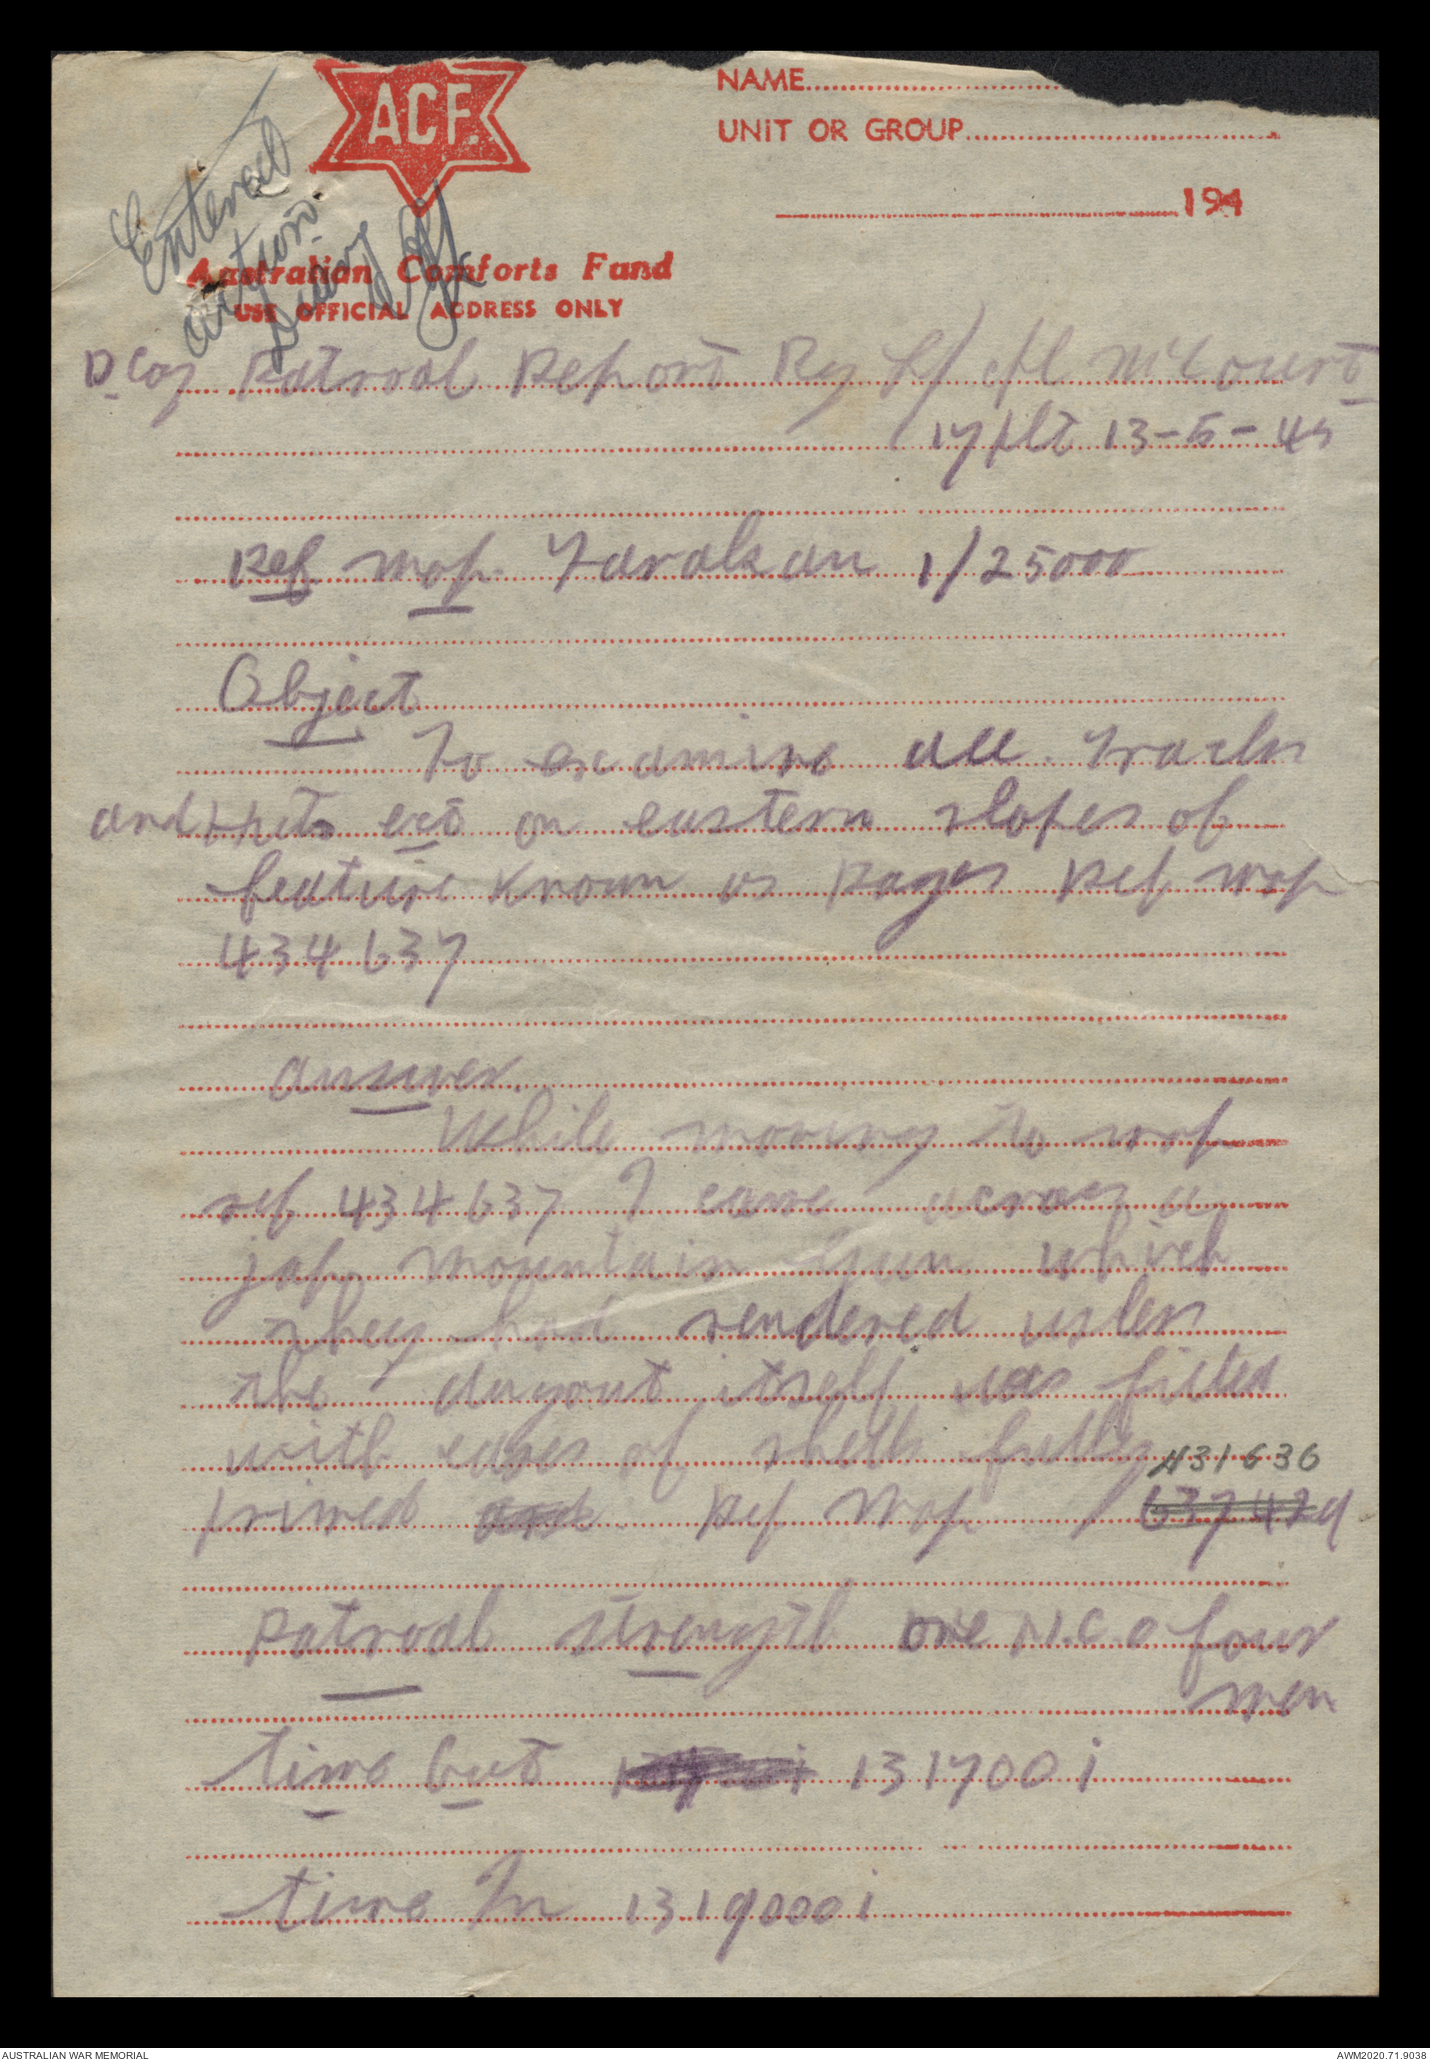 A.C.F.
NAME
UNIT OR GROUP
194
Entered
action
Diary
Australian Comforts Fund
USE OFFICIAL ADDRESS ONLY
D Coy Patroal Report By L/Cpl McCourt
17 plt 13-5-45
Ref Map. Tarakan 1/25000
Object
To examine all tracks
and Huts ect on eastern slopes of
feature known as Pages Ref Map
434637
Answer.
While moving to map
ref 434637 I came across a
jap mountain Gun which
they had rendered usless
the dugout itself was filled
with cases of shells fully
431636
primed and Ref Map 637429
Patroal strength one N.C.O four
men
time Out 131700 i
time In 1319000 i
AUSTRALIAN WAR MEMORIAL
AWM2020.71.9038